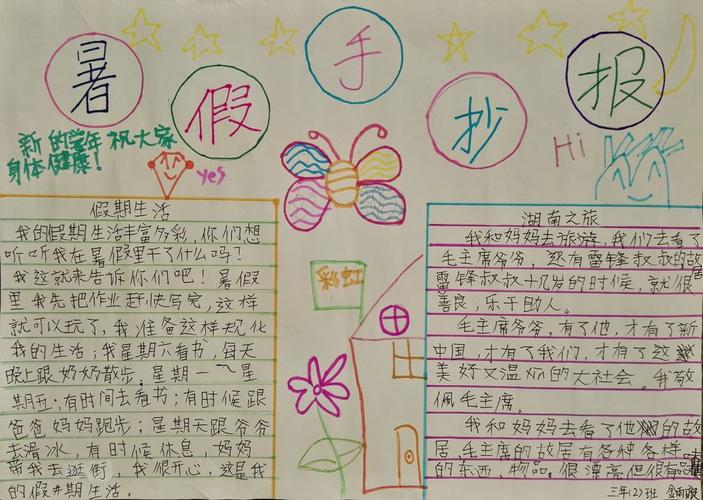 暑假手抄报
新的学年祝大家
身体健康!
yes
Hi
彩虹
假期生活
我的假期生活丰富多彩,你们想
听听我在暑假里干了什么吗?
我这就来告诉你们吧!暑假
里我先把作业赶快写完,这样
就可以玩了,我准备这样规化
我的生活;我星期六看书,每天
晚上跟奶奶散步。星期一~星
期五;有时间去看书;有时候跟
爸爸妈妈跑步;星期天跟爷爷
去滑冰,有时候休息,妈妈
带我去逛街,我很开心,这是我
的假期生活。
湖南之旅
我和妈妈去旅游,我们去看了
毛主席爷爷,还有雷锋叔叔的故居
雷锋叔叔十几岁的时候,就很
善良,乐于助人。
毛主席爷爷,有了他,才有了新
中国,才有了我们,才有了这
美好又温热的大社会。我敬
佩毛主席。
我和妈妈去看了他的故
居,毛主席的故居有各种各样
的东西,物品。很漂亮但很有
三年(2)班